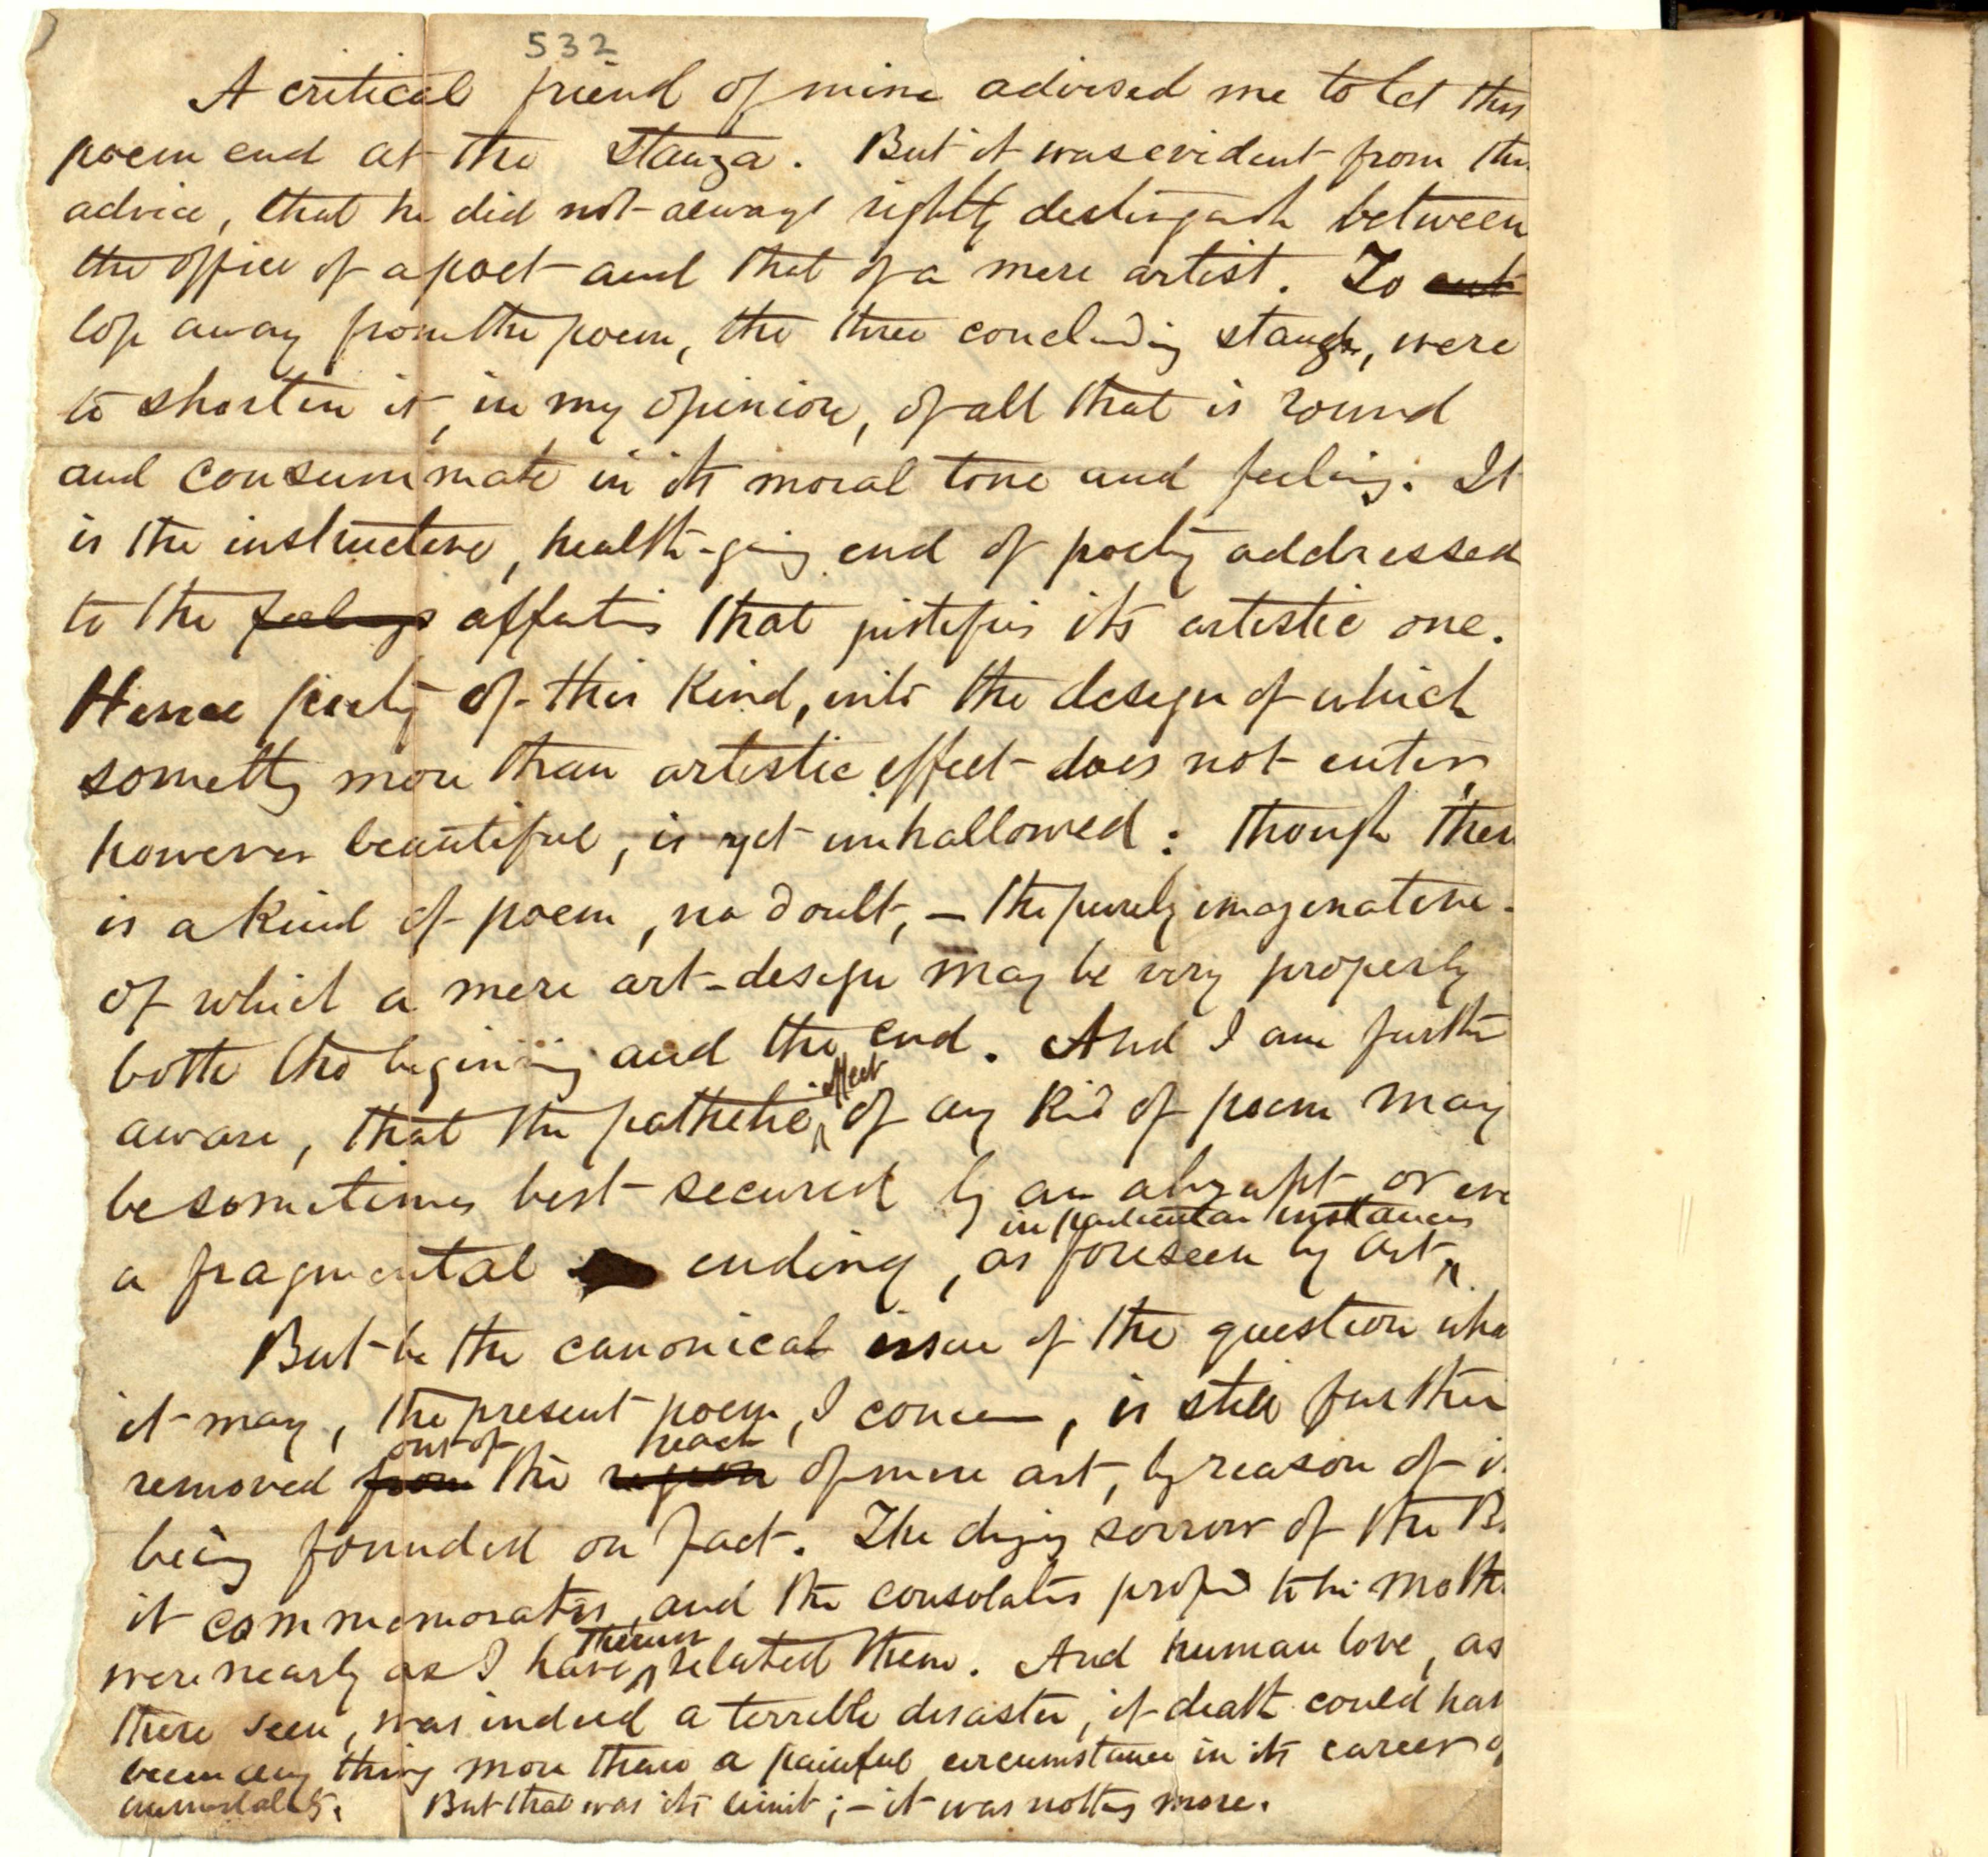 532
A critical friend of mine advised me to let this
poem end at the Stanza. But it was evident from this
advice, that he did not always rightly distinguish between
the office of a poet and that of a mere artist. To cut
lop away from the poem, the three concluding stanzas, were
to shorten it, in my opinion, of all that is round
and consummate in its moral tone and feeling. It
is the instructive, health-giving end of poetry addressed
to the feelings affections that justifies its artistic one.
Hence poetry of this kind, into the design of which
something more than artistic effect does not enter,
however beautiful, is yet unhallowed: though there
is a kind of poem, no doubt, — the purely imaginative -
of which a mere art-design may be very properly
both the beginning and the end. And I am further
effect
aware, that the pathetic of any kind of poem may
be sometimes best secured by an abrupt, or even
in particular instances
a fragmental ending, as foreseen by art
But be the canonical issue of the question what
it may, the present poem, I conceive, is still further
out of reach
removed from the region of mere art, by reason of its
being founded on fact. The dying sorrow of the B
it commemorates, and the consolations proper to his mother
therein
were nearly as I have related them. And human love, as
there seen, was indeed a terrible disaster, if death could have
been any thing more than a painful circumstance in its career of
immortality. But that was its limit; — it was nothing more.